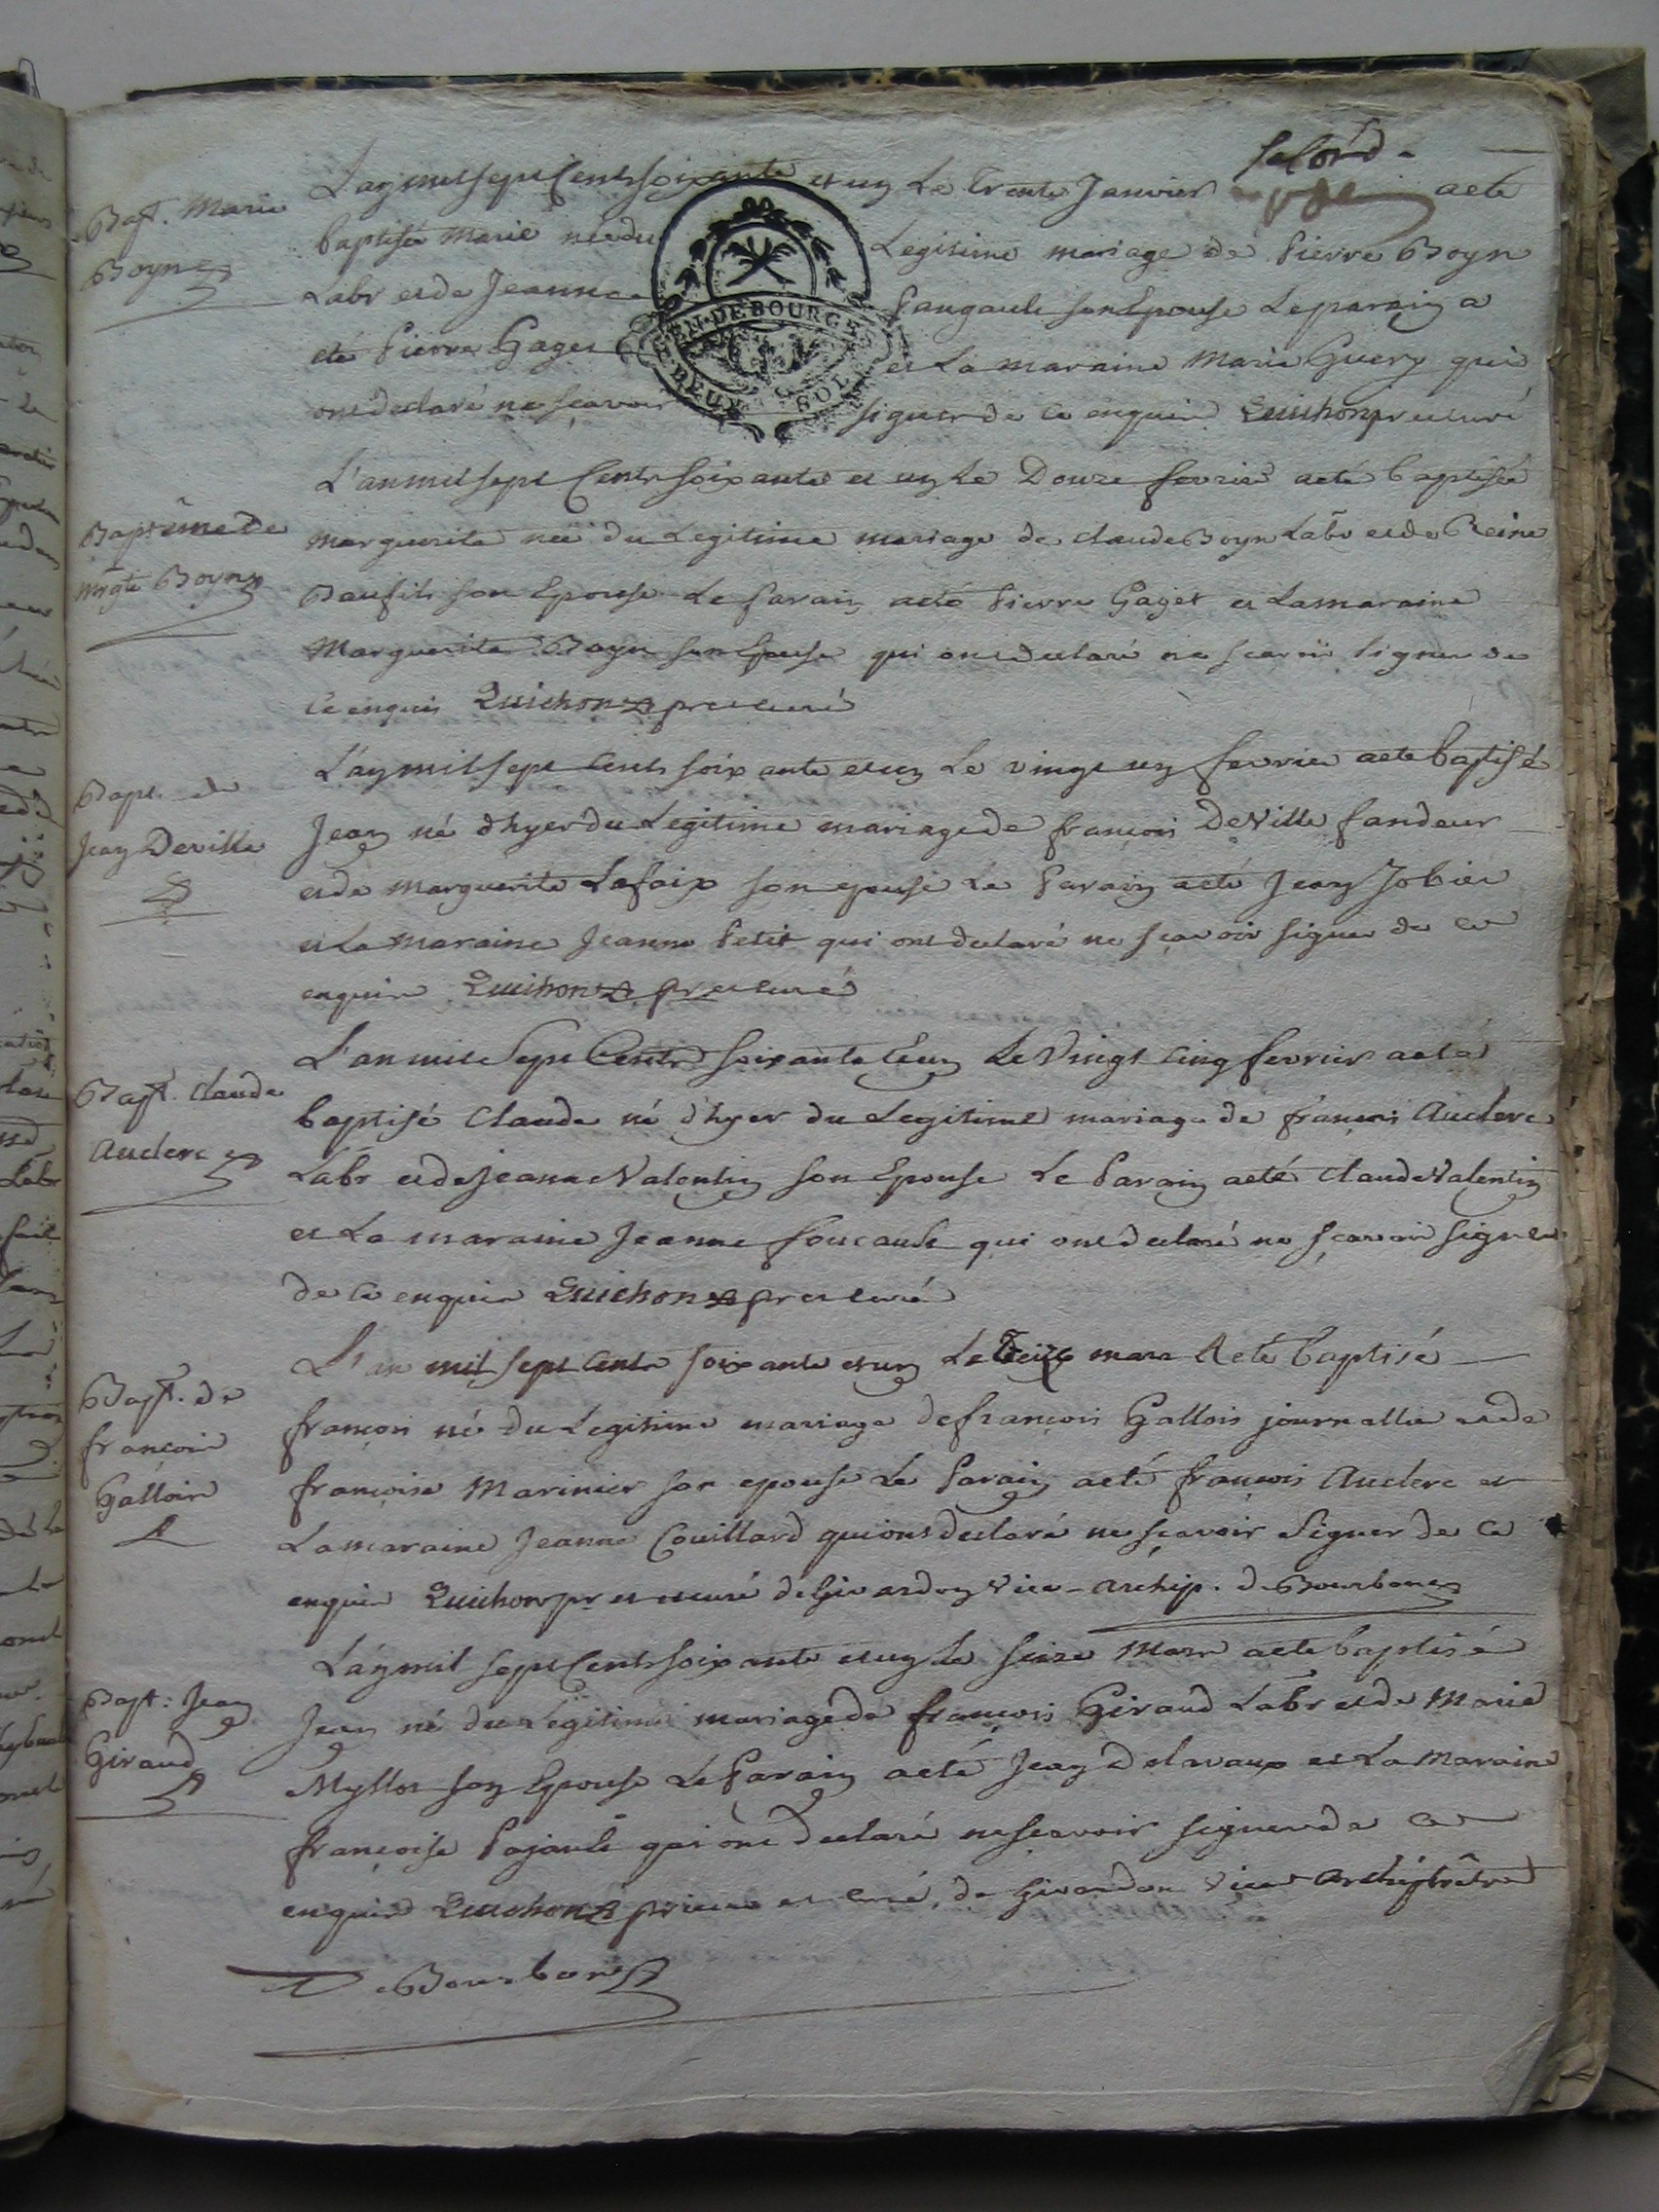 Bapt. Marie
Boyn
L'an mil sept Cents soixante et un Le trente Janvier a eté
baptisée Marie née du Legitime mariage de Pierre Boyn
Labr et de Jeanne Paugault son Epouse Le parain a
eté Pierre Gaget et La maraine Marie Guery qui
ont declaré ne sçavoir signer de ce enquis Quichon pr et curé
GEN. DE BOURGES
DEUX SOLS
Baptême de
Mrgte Boyn
L'an mil sept Cents soixante et un Le Douze fevrier a eté baptisée
Marguerite née du Legitime mariage de Claude Boyn Labr et de Reine
Baufils son Epouse Le Parain a eté Pierre Gaget et La maraine
Marguerite Boyn son Epouse qui ont declaré ne scavoir signer de
ce enquis Quichon pr et curé
Bapt. de
Jean Deville
L'an mil sept Cents soixante et un Le vingt un fevrier a eté baptisé
Jean né d'hyer du Legitime mariage de françois DeVille fandeur
et de Marguerite Lafaix son epouse Le Parain a eté Jean Jobier
et La Maraine Jeanne Petit qui ont declaré ne sçavoir signer de ce
enquis Quichon pr et curé
Bapt. Claude
Auclerc
L'an mil Sept Cents soixante et un Le Vingt cinq fevrier a eté
baptisé Claude né d'hyer du Legitime mariage de françois Auclerc
Labr et de Jeanne Valentin son Epouse Le Parain a eté Claude Valentin
et La maraine Jeanne foucault qui ont declaré ne sçavoir signer
de ce enquis Quichon pr et curé
Bapt. de
françois
Gallois
L'an mil sept cents soixante et un Le mars A eté baptisé
françois né du Legitime mariage de françois Gallois journallier et de
françoise Marinier son epouse Le Parain a eté françois Auclerc et
La maraine Jeanne Couillard qui ont declaré ne sçavoir Signer de ce
enquis Quichon pr et curé de Givardon Vice-archip. de Bourbon
Bapt: Jean
Giraud
L'an mil sept Cents soixante et un Le seize Mars a eté baptisé
Jean né du Legitime mariage de françois Giraud Labr et de Marie
Myllot son Epouse Le Parain a eté Jean Delavaux et La Maraine
françoise Pajault qui ont declaré ne scavoir signer de ce
enquis Quichon prieur et curé de Givardon Vice Archiprêtre
De Bourbon